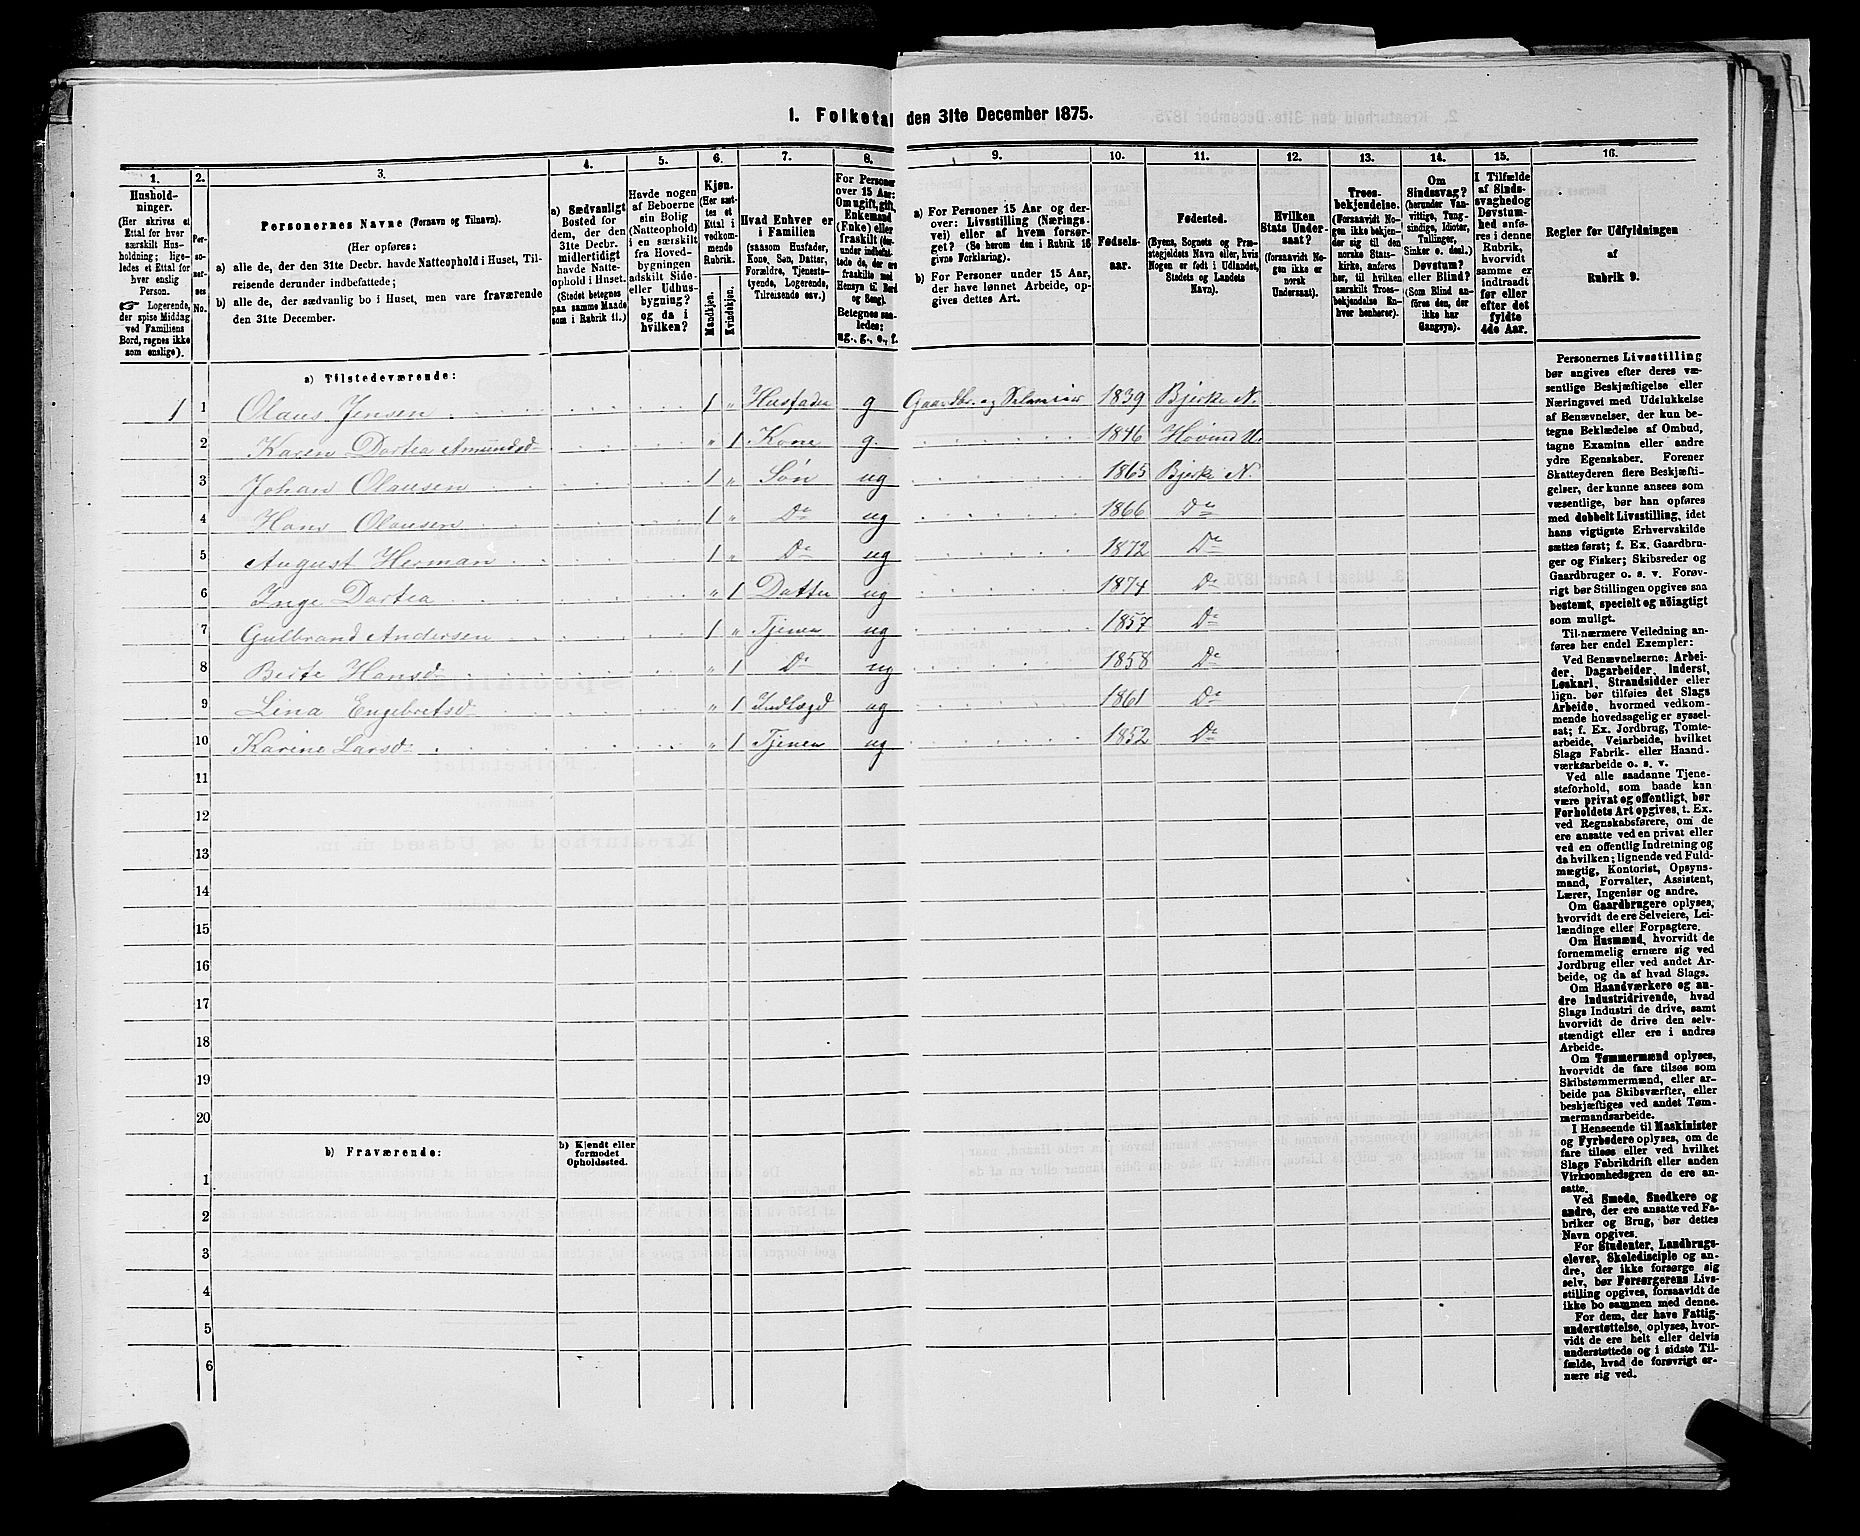 1. Folketal den 31te December 1875.
1.
Hushold-
ninger.
(Her skrives et
Ettal for hver
særskilt Hus-
holdning; lige-
ledes et Ettal for
hver enslig
Person.
Logerende,
der spise Middag
ved Familiens
Bord, regnes ikke
som enslige).
2.
Per-
so-
ner-
nes
No.
3.
Personernes Navne (Fornavn og Tilnavn).
(Her opføres:
a) alle de, der den 31te Decbr. havde Natteophold i Huset, Til-
reisende derunder indbefattede;
b) alle de, der sædvanlig bo i Huset, men vare fraværende
den 31te December.
4.
a) Sædvanligt
Bosted for
dem, der den
31te Decbr.
midlertidigt
havde Natte-
ophold i Huset.
(Stedet betegnes
paa samme Maade
som i Rubrik 11.)
5.
Havde nogen
af Beboerne
sin Bolig
(Natteophold)
i en særskilt
fra Hoved-
bygningen
adskilt Side-
eller Udhus-
bygning?
og da i
hvilken?
6.
Kjøn.
(Her sæt-
tes et
Ettal i
vedkom-
mende
Rubrik.
Mandkjøn.
Kvindekjøn.
7.
Hvad Enhver er
i Familien
(saasom Husfader,
Kone, Søn, Datter,
Forældre, Tjeneste-
tyende, Logerende,
Tilreisende osv.)
8.
For Personer
over 15 Aar:
Om ugift, gift,
Enkemand
(Enke) eller
fraskilt
Betegnes saa-
ledes:
ug., g., e., f.
9.
a) For Personer 15 Aar og der-
over: Livsstilling (Nærings-
vei) eller af hvem forsør-
get? (Se herom den i Rubrik 16
givne Forklaring).
b) For Personer under 15 Aar,
der have lønnet Arbeide, op-
gives dettes Art.
10.
Fødsels-
aar.
11.
Fødested.
(Byens, Sognets og Præ-
stegjeldets Navn eller, hvis
Nogen er født i Udlandet,
Stedets og Landets
Navn).
12.
Hvilken
Stats Under-
saat?
(forsaavidt No-
gen ikke er
norsk
Undersaat).
13.
Troes-
bekjendelse.
(Forsaavidt No-
gen ikke bekjen-
der sig til den
norske Stats-
kirke, anføres
her, til hvilken
særskilt Troes-
bekjendelse En-
hver henhører).
14.
Om
Sindssvag?
(herunder Van-
vittige, Tung-
sindige, Idioter,
Tullinger,
Sinker o. desl.)
Døvstum?
eller Blind?
(Som Blind an-
føres den, der
ikke har
Gangsyn).
15.
I Tilfælde
af Sinds-
svaghed og
Døvstum-
hed anfø-
res i denne
Rubrik,
hvorvidt
samme er
indtraadt
før eller
efter det
fyldte
4de Aar.
16.
Regler for Udfyldningen
af
Rubrik 9.
a) Tilstedeværende:
1 1 Olaus Jensen 1 " Husfader g Gaardbr. og Selveier 1839 Bjerke N.
2 Karen Dortea Amundsd " 1 Kone g 1846 Hovind U.
3 Johan Olausen 1 " Søn ug 1865 Bjerke N.
4 Hans Olausen 1 " Do ug 1866 Do
5 August Herman 1 " Do ug 1872 Do
6 Inge Dortea " 1 Datter ug 1874 Do
7 Gulbrand Andersen 1 " Tjener ug 1857 Do
8 Berte Hansd " 1 Do ug 1858 Do
9 Lina Engebretsd " 1 Indlagd ug 1861 Do
10 Karine Larsd " 1 Tjener ug 1852 Do
11
12
13
14
15
16
17
18
19
20
b) Fraværende:
b) Kjendt eller
formodet
Opholdssted.
1
2
3
4
5
6
Personernes Livsstilling
bør angives efter deres væ-
sentlige Beskjæftigelse eller
Næringsvei med Udelukkelse
af Benævnelser, der kun be-
tegne Beklædelse af Ombud,
tagne Examina eller andre
ydre Egenskaber. Forener
Skatteyderen flere Beskjæfti-
gelser, der kunne ansees som
væsentlige, bør han opføres
med dobbelt Livsstilling, idet
hans vigtigste Erhvervskilde
sættes først; f. Ex. Gaardbru-
ger og Fisker; Skibsreder og
Gaardbruger o. s. v. Forøv-
rigt bør Stillingen opgives saa
bestemt, specielt og nøiagtigt
som muligt.
Til nærmere Veiledning an-
føres her endel Exempler:
Ved Benævnelserne: Arbei-
der, Dagarbeider, Inderst,
Løskarl, Strandsidder eller
lign. bør tilføies det Slags
Arbeide, hvormed vedkom-
mende hovedsagelig er syssel-
sat; f. Ex. Jordbrug, Tomte-
arbeide, Veiarbeide, hvilket
Slags Fabrik- eller Haand-
værksarbeide o. s. v.
Ved alle saadanne Tjene-
steforhold, som baade kan
være privat og offentligt, bør
Forholdets Art opgives, t. Ex.
ved Regnskabsførere, om de
ere ansatte ved en privat eller
ved en offentlig Indretning og
da hvilken; lignende ved Fuld-
mægtig, Kontorist, Opsyns-
mand, Forvalter, Assistent,
Lærer, Ingeniør og andre.
Om Gaardbrugere oplyses,
hvorvidt de ere Selveiere, Lei-
lændinge eller Forpagtere.
Om Husmænd, hvorvidt de
fornemmelig ernære sig ved
Jordbrug eller ved andet Ar-
beide, og da af hvad Slags.
Om Haandværkere og an-
dre Industridrivende, hvad
Slags Industri de drive, samt
hvorvidt de drive den selv-
stændigt eller ere i andres
Arbeide.
Om Tømmermænd oplyses,
hvorvidt de fare tilsøs som
Skibstømmermænd, eller ar-
beide paa Skibsværfter, eller
beskjæftiges ved andet Tøm-
mermandsarbeide.
I Henseende til Maskinister
og Fyrbødere oplyses, om de
fare tilsøs eller ved hvilket
Slags Fabrikdrift eller anden
Virksomhedsgren de ere an-
satte.
Ved Smede, Snedkere og
andre, der ere ansatte ved Fa-
briker og Brug, bør dettes
Navn opgives.
For Studenter, Landbrugs-
elever, Skoledisciple og an-
dre, der ikke forsørge sig
selv, bør Forsørgerens Livs-
stilling opgives, forsaavidt de
ikke bo sammen med denne.
For dem, der have Fattig-
understøttelse, oplyses, hvor-
vidt de ere helt eller delvis
understøttede og i sidste Til-
fælde, hvad de forøvrigt er-
nære sig ved.